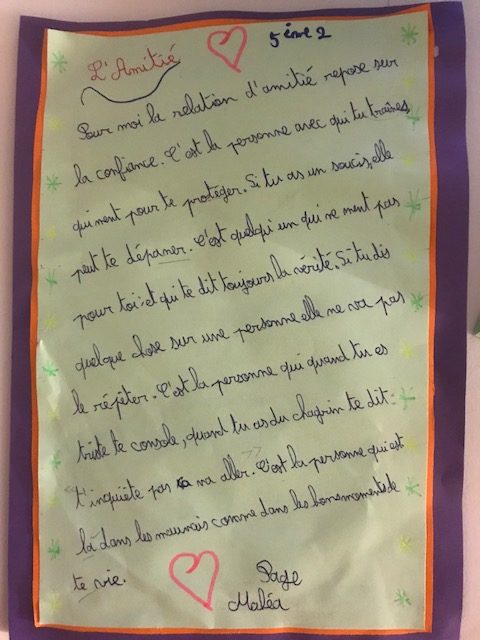 L'Amitié 5ème 2
Pour moi la relation d'amitié repose sur
la confiance. C'est la personne avec qui tu traînes
qui ment pour te protéger. Si tu as un soucis, elle
peut te dépaner. C'est quelqu'un qui ne ment pas
pour toi et qui te dit toujours la vérité. Si tu dis
quelque chose sur une personne elle ne va pas
le répéter. C'est la personne qui quand tu es
triste te console, quand tu as du chagrin te dit :
"t'inquiète pas ça va aller." C'est la personne qui est
là dans les mauvais comme dans les bons moments de
te vie.
Page
Maléa